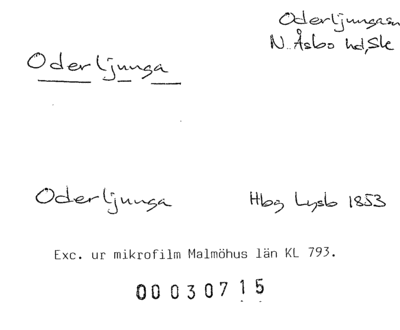 Oderljungasn
N. Åsbo hd, Ske
Oderljunga
Oderljunga Hbg Lysb 1853
Exc. ur mikrofilm Malmöhus län KL 793.
00030715